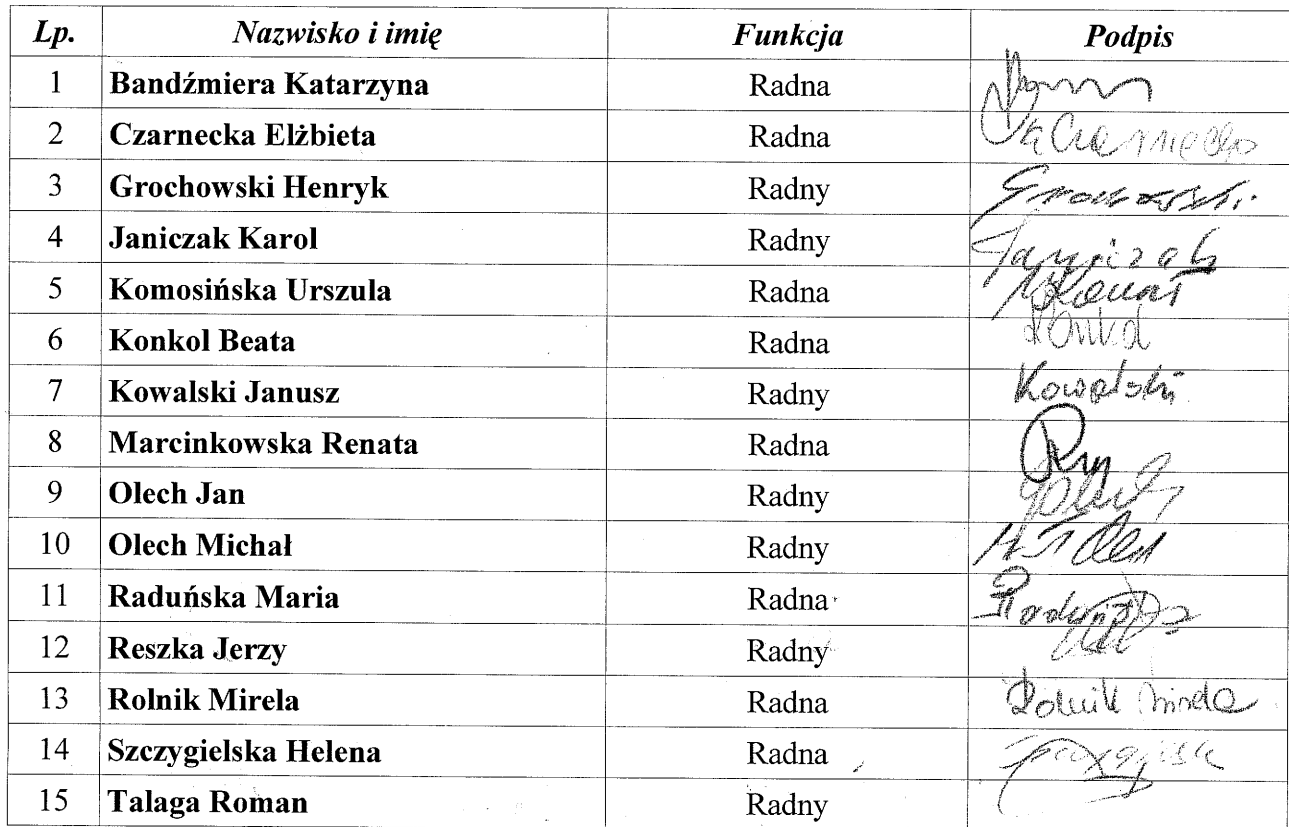 Lp. Nazwisko i imię Funkcja Podpis
1 Bandźmiera Katarzyna Radna
2 Czarnecka Elżbieta Radna
3 Grochowski Henryk Radny Grochowski
4 Janiczak Karol Radny Janiczak
5 Komosińska Urszula Radna
6 Konkol Beata Radna Konkol
7 Kowalski Janusz Radny Kowalski
8 Marcinkowska Renata Radna
9 Olech Jan Radny
10 Olech Michał Radny
11 Raduńska Maria Radna
12 Reszka Jerzy Radny
13 Rolnik Mirela Radna Rolnik Mirela
14 Szczygielska Helena Radna
15 Talaga Roman Radny